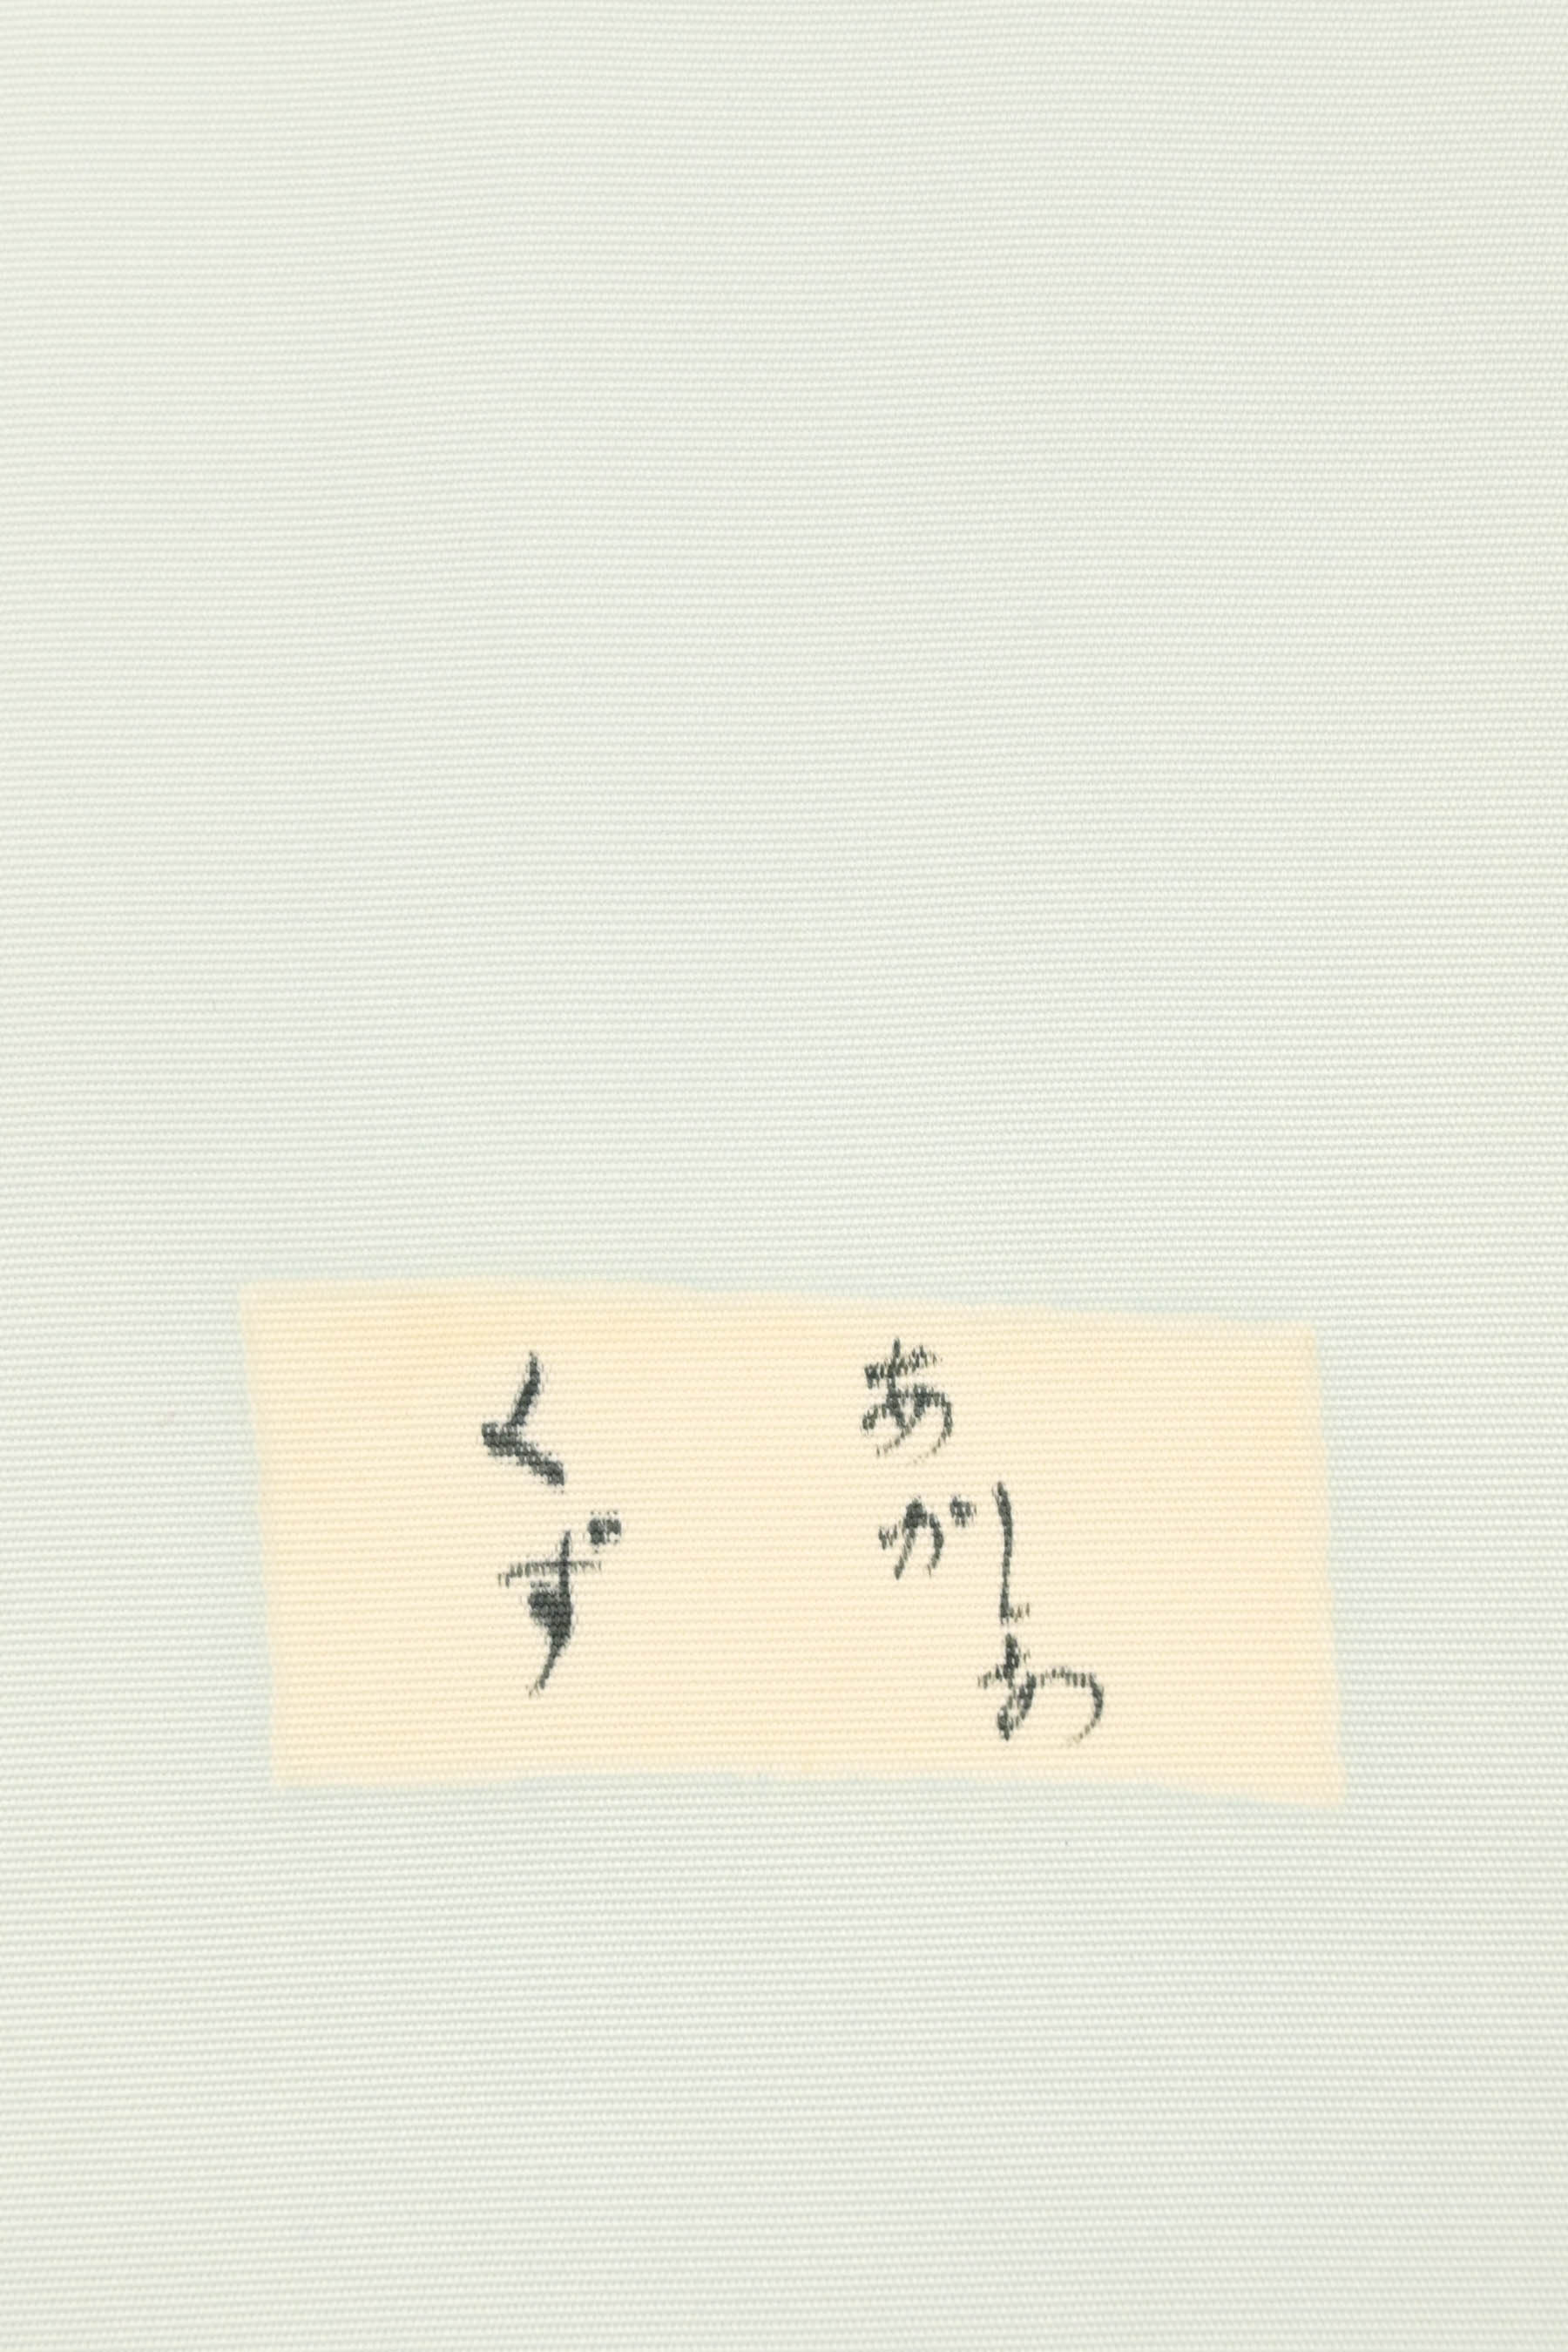 しわ
あが
くず